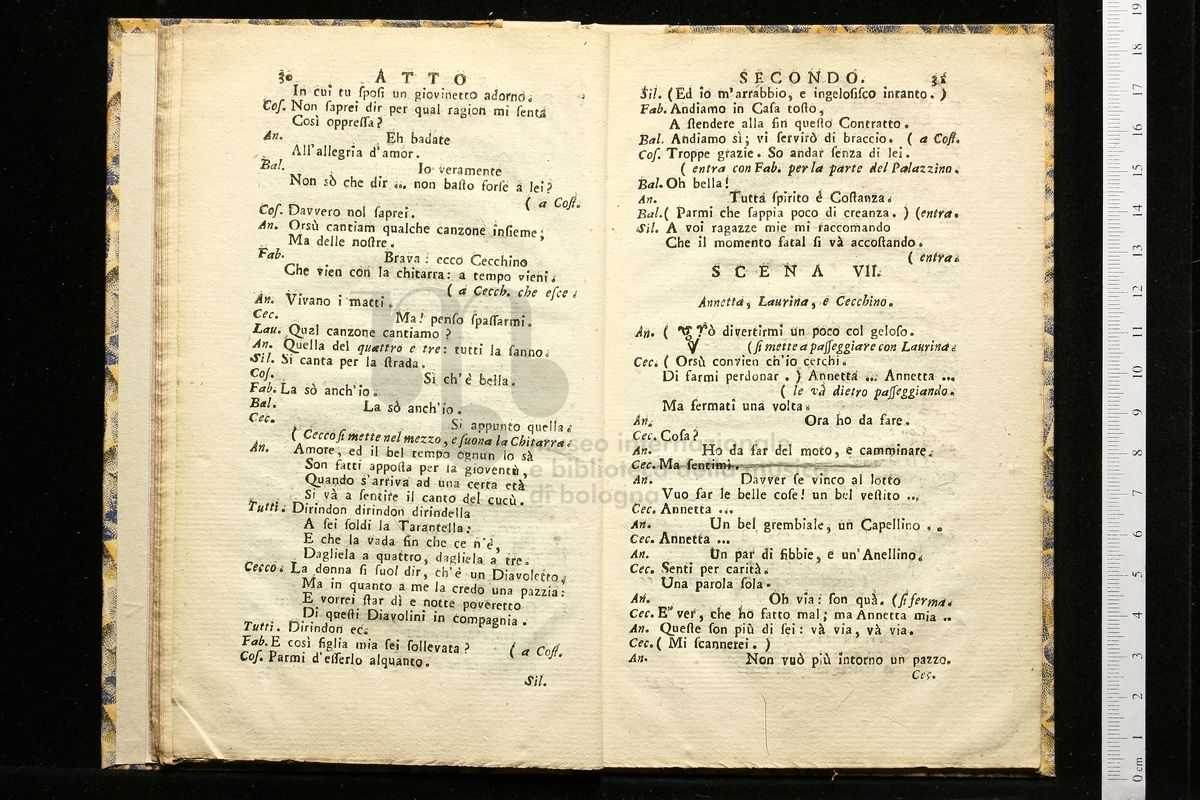 30 ATTO
In cui tu sposi un giovinetto adorno.
Cos. Non saprei dir per qual ragion mi senta
Così oppressa?
An. Eh badate
All'allegria d'amor.
Bal. Io veramente
Non sò che dir ... non basto forse a lei?
( a Cost.
Cos. Davvero nol saprei.
An. Orsù cantiam qualche canzone insieme;
Ma delle nostre.
Fab. Brava: ecco Cecchino
Che vien con la chitarra: a tempo vieni.
( a Cecch. che esce.
An. Vivano i matti.
Cec. Ma! penso spassarmi.
Lau. Qual canzone cantiamo?
An. Quella del quattro e tre: tutti la sanno.
Sil. Si canta per la strada.
Cos. Sì ch'è bella.
Fab. La sò anch'io.
Bal. La sò anch'io.
Cec. Si appunto quella.
( Cecco si mette nel mezzo, e suona la Chitarra.
An. Amore, ed il bel tempo ognun lo sà
Son fatti apposta per la gioventù,
Quando s'arriva ad una certa età
Si và a sentire il canto del cucù.
Tutti. Dirindon dirindon dirindella
A sei soldi la Tarantella:
E che la vada fin che ce n'è,
Dagliela a quattro, dagliela a tre.
Cecco. La donna si suol dir, ch'è un Diavoletto,
Ma in quanto a me la credo una pazzia:
E vorrei star dì e notte poveretto
Di questi Diavolini in compagnia.
Tutti. Dirindon ec.
Fab. E così figlia mia sei sollevata? ( a Cost.
Cos. Parmi d'esserlo alquanto.
Sil.
SECONDO. 31
Sil. (Ed io m'arrabbio, e ingelosisco intanto.)
Fab. Andiamo in Casa tosto,
A stendere alla fin questo Contratto.
Bal. Andiamo sì; vi servirò di braccio. ( a Cost.
Cos. Troppe grazie. So andar senza di lei.
( entra con Fab. per la parte del Palazzino.
Bal. Oh bella!
An. Tutta spirito è Costanza.
Bal. ( Parmi che sappia poco di creanza. ) (entra.
Sil. A voi ragazze mie mi raccomando
Che il momento fatal si và accostando.
( entra.
SCENA VII.
Annetta, Laurina, e Cecchino.
An. ( Vò divertirmi un poco col geloso.
(si mette a passeggiare con Laurina.
Cec. ( Orsù convien ch'io cerchi.
Di farmi perdonar. ) Annetta ... Annetta ...
( le và dietro passeggiando.
Ma fermati una volta.
An. Ora ho da fare.
Cec. Cosa?
An. Ho da far del moto, e camminare.
Cec. Ma sentimi.
An. Davver se vinco al lotto
Vuo far le belle cose! un bel vestito ...
Cec. Annetta ...
An. Un bel grembiale, un Capellino ..
Cec. Annetta ...
An. Un par di fibbie, e un'Anellino.
Cec. Senti per carità.
Una parola sola.
An. Oh via: son quà. (si ferma.
Cec. E' ver, che ho fatto mal; ma Annetta mia ..
An. Queste son più di sei: và via, và via.
Cec. ( Mi scannerei. )
An. Non vuò più intorno un pazzo.
Cec.
museo internazionale
e biblioteca della musica
di bologna